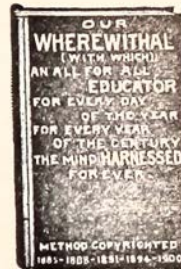 OUR
WHEREWITHAL
(WITH WHICH)
AN ALL FOR ALL
EDUCATOR
FOR EVERY DAY
OF THE YEAR
FOR EVERY YEAR
OF THE CENTURY
THE MIND HARNESSED
FOREVER
METHOD COPYRIGHTED
1885-1888-1891-1894-1900